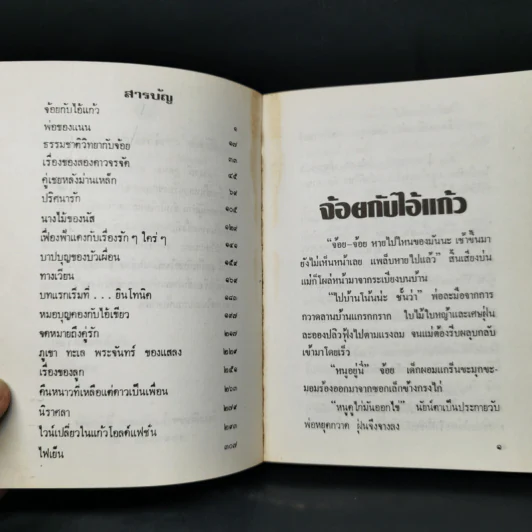 สารบัญ
จ้อยกับไอ้แก้ว ๑
พ่อของแนน ๑๗
ธรรมชาติวิทยากับจ้อย ๓๓
เรื่องของสองดาวจรจัด ๔๕
คู่เชยหลังม่านเหล็ก ๖๙
ปริศนารัก ๑๐๕
นางไม้ของนัส ๑๒๑
เฟื่องฟ้าแดงกับเรื่องรัก ๆ ใคร่ ๆ ๑๔๑
บาปบุญของบัวเผื่อน
ทางเวียน
บทแรกเริ่มที่ . . . ยินโทนิค
หมอบุญคองกับไอ้เขียว
จดหมายถึงคู่รัก
ภูเขา ทะเล พระจันทร์ ของแสลง ๒๒๙
เรื่องของลูก
คืนหนาวที่เหลือแต่ดาวเป็นเพื่อน ๒๖๓
นิราศลา
ไวน์เปลี่ยวในแก้วโอลด์แฟชั่น
ไฟเย็น ๓๐๗
จ้อยกับไอ้แก้ว
"จ้อย-จ้อย หายไปไหนของมันนะ เช้าขึ้นมา
ยังไม่เห็นหน้าเลย แพล็บหายไปแล้ว" สิ้นเสียงบ่น
แม่ก็โผล่หน้ามาจากระเบียงบนบ้าน
"ไปบ้านโน้นน่ะ ชั้นว่า" พ่อละมือจากการ
กวาดลานบ้านแกรกกราก ใบไม้ใบหญ้าและเศษฝุ่น
ละอองปลิวฟุ้งไปตามแรงลม จนแม่ต้องรีบผลุบกลับ
เข้ามาโดยเร็ว
"หนูอยู่นี่" จ้อย เด็กผอมแกร็นขะมุกขะ-
มอมร้องออกมาจากซอกเล็กข้างกรงไก่
"หนูดูไก่มันออกไข่" นัยน์ตาเป็นประกายวับ
พ่อหยุดกวาด ฝุ่นจึงจางลง
๑